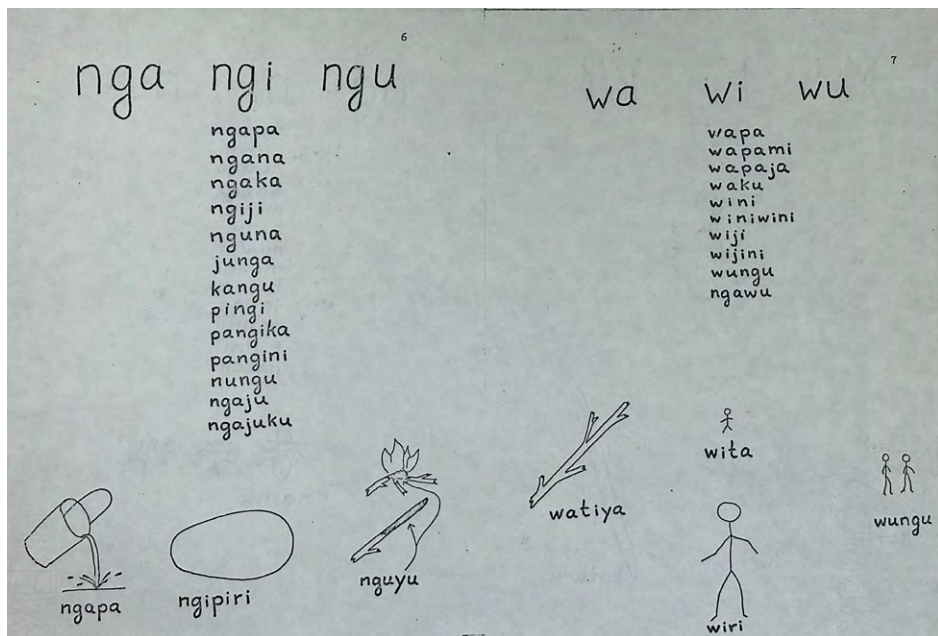 6
nga ngi ngu
ngapa
ngana
ngaka
ngiji
nguna
junga
kangu
pingi
pangika
pangini
nungu
ngaju
ngajuku
ngapa
ngipiri
nguyu
7
wa wi wu
wapa
wapami
wapaja
waku
wini
winiwini
wiji
wijini
wungu
ngawu
watiya
wita
wiri
wungu